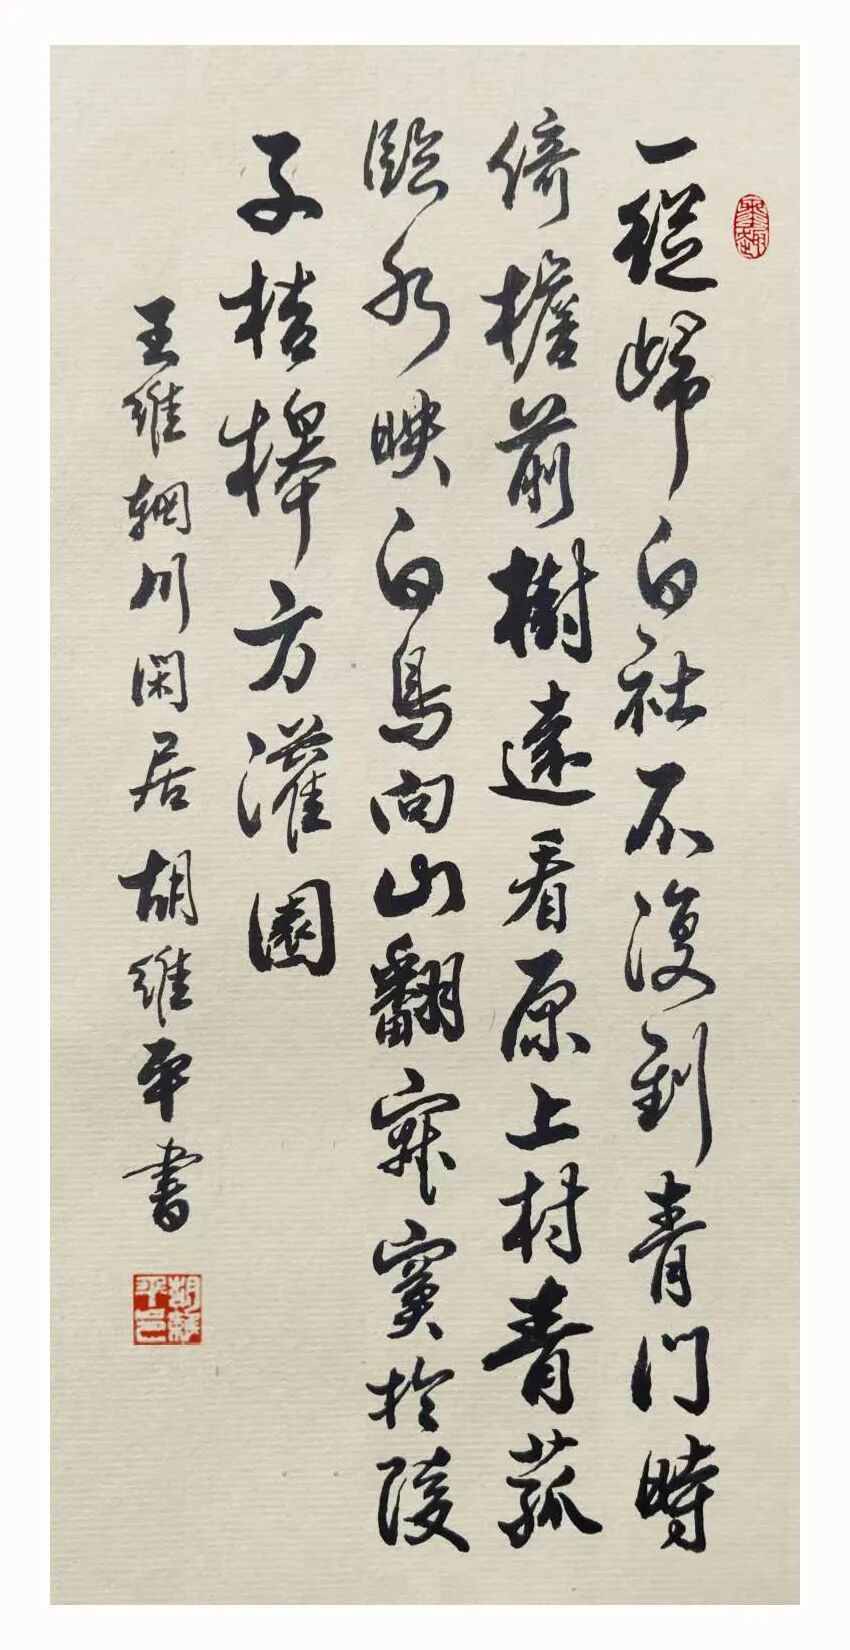 一従歸白社不復到青門時
倚檐前樹遠看原上村青菰
臨水映白鳥向山翻寂寞於陵
子桔槔方灌園
王維輞川閑居胡維平書
胡維平印